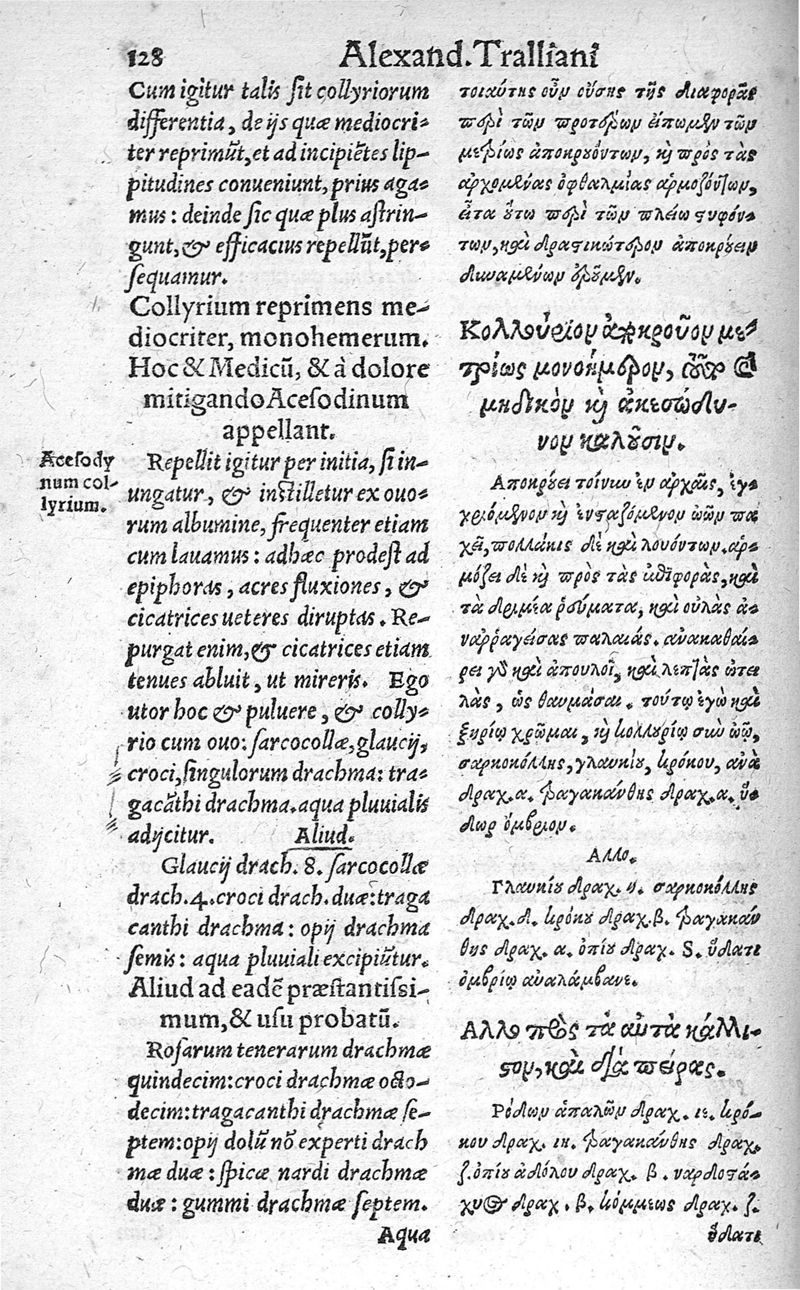 128 Alexand. Tralliani
Cum igitur talis sit collyriorum
differentia, de ijs quæ mediocri-
ter reprimũt, et ad incipiẽtes lip-
pitudines conueniunt, prius aga-
mus: deinde sic quæ plus astrin-
gunt, & efficacius repellũt, per-
sequamur.
Collyrium reprimens me-
diocriter, monohemerum.
Hoc & Medicũ, & à dolore
mitigando Acesodinum
appellant.
Acesody
num col-
lyrium.
Repellit igitur per initia, si in-
ungatur, & instilletur ex ouo-
rum albumine, frequenter etiam
cum lauamus: adhæc prodest ad
epiphoras, acres fluxiones, &
cicatrices ueteres diruptas. Re-
purgat enim, & cicatrices etiam
tenues abluit, ut mireris. Ego
utor hoc & puluere, & colly-
rio cum ouo: sarcocollæ, glaucij,
croci, singulorum drachma: tra-
gacãthi drachma. aqua pluuialis
adijcitur. Aliud.
Glaucij drach. 8. sarcocollæ
drach. 4. croci drach. duæ: traga
canthi drachma: opij drachma
semis: aqua pluuiali excipiũtur.
Aliud ad eadẽ præstantissi-
mum, & usu probatũ.
Rosarum tenerarum drachmæ
quindecim: croci drachmæ octo-
decim: tragacanthi drachmæ se-
ptem: opij dolũ nõ experti drach
mæ duæ: spicæ nardi drachmæ
duæ: gummi drachmæ septem.
Aqua
τοιαύτης οὖν οὔσης τῆς διαφορᾶς
περὶ τῶν προτέρων εἴπωμεν τῶν
μετρίως ἀποκρουόντων, καὶ πρὸς τὰς
ἀρχομένας ὀφθαλμίας ἁρμοζόντων,
εἶτα οὕτω περὶ τῶν πλέω στυφόν-
των, καὶ δραστικώτερον ἀποκρούειν
δυναμένων ἐροῦμεν.
Κολλούριον ἀποκροῦον με-
τρίως μονοήμερον, ὅπερ καὶ
μηδικὸν καὶ ἀκεσώδυ-
νον καλοῦσιν.
Ἀποκρούει τοίνυν ἐν ἀρχαῖς, ἐγ-
χριόμενον καὶ ἐνσταζόμενον ὠῶν πα
χεῖ, πολλάκις δὲ καὶ λουόντων. ἁρ-
μόζει δὲ καὶ πρὸς τὰς ἐπιφορὰς, καὶ
τὰ δριμέα ῥεύματα, καὶ οὐλὰς ἀ-
ναρραγείσας παλαιάς. ἀνακαθαί-
ρει γὰρ καὶ ἀπουλοῖ, καὶ λεπτὰς ὠτει
λὰς, ὡς θαυμάσαι. τούτῳ ἐγὼ καὶ
ξηρίῳ χρῶμαι, καὶ κολλουρίῳ σὺν ὠῷ,
σαρκοκόλλης, γλαυκίου, κρόκου, ἀνὰ
δραχ. α. τραγακάνθης δραχ. α. ὕ-
δωρ ὄμβριον.
Ἄλλο.
Γλαυκίου δραχ. η. σαρκοκόλλης
δραχ. δ. κρόκου δραχ. β. τραγακάν
θης δραχ. α. ὀπίου δραχ. S. ὕδατι
ὀμβρίῳ ἀναλάμβανε.
Ἄλλο πρὸς τὰ αὐτὰ κάλλι-
στον, καὶ διὰ πείρας.
Ῥόδων ἁπαλῶν δραχ. ιε. κρό-
κου δραχ. ιη. τραγακάνθης δραχ.
ζ. ὀπίου ἀδόλου δραχ. β. ναρδοστά-
χυος δραχ. β. κόμμεως δραχ. ζ.
ὕδατι